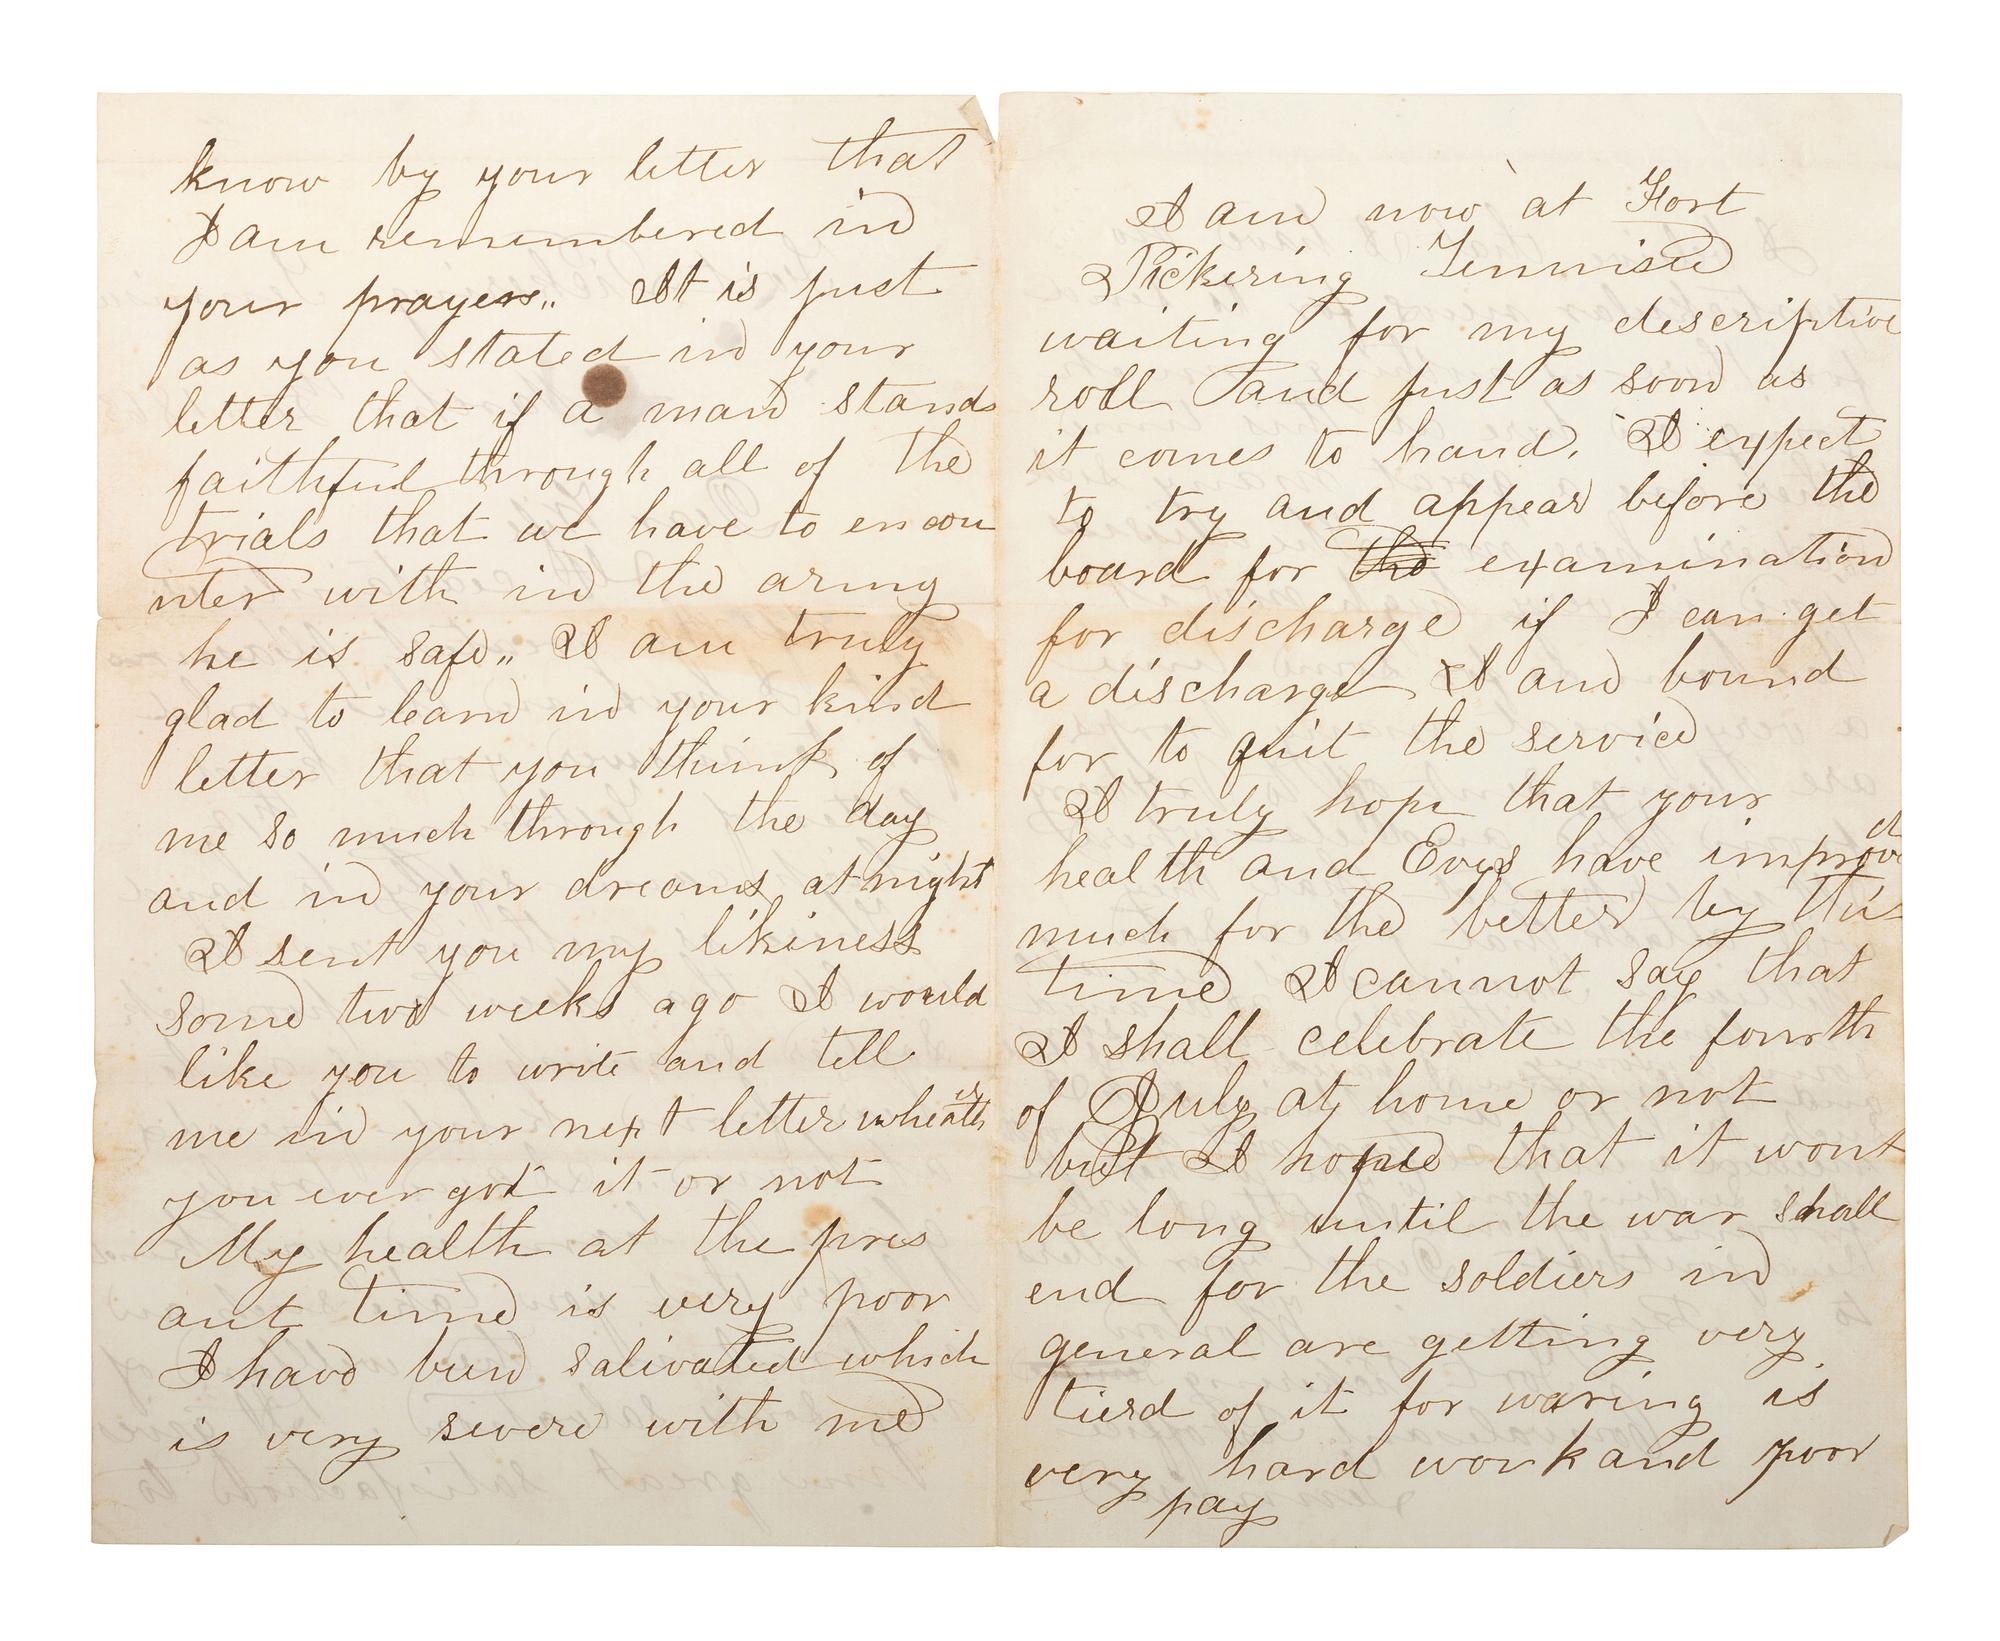 know by your letter that
I am remembered in
your prayers,, It is just
as you stated in your
letter that if a man stands
faithful through all of the
trials that we have to encou
nter with in the army
he is safe,, I am truly
glad to learn in your kind
letter that you think of
me so much through the day
and in your dreams at night
I sent you my likiness
some two weeks ago I would
like you to write and tell
me in your next letter wheather
you ever got it or not
My health at the pres
ant time is very poor
I have bein salivated which
is very severe with me
I am now at Fort
Pickering Tennisee
waiting for my descriptive
roll and just as soon as
it comes to hand. I expect
to try and appear before the
board for the examination
for discharge if I can get
a discharge I am bound
for to quit the service
I truly hope that your
health and Eyes have improved
much for the better by this
time I cannot say that
I shall celebrate the fourth
of July at home or not
but I hope that it wont
be long until the war shall
end for the soldiers in
general are getting very
tierd of it for waring is
very hard work and poor
pay